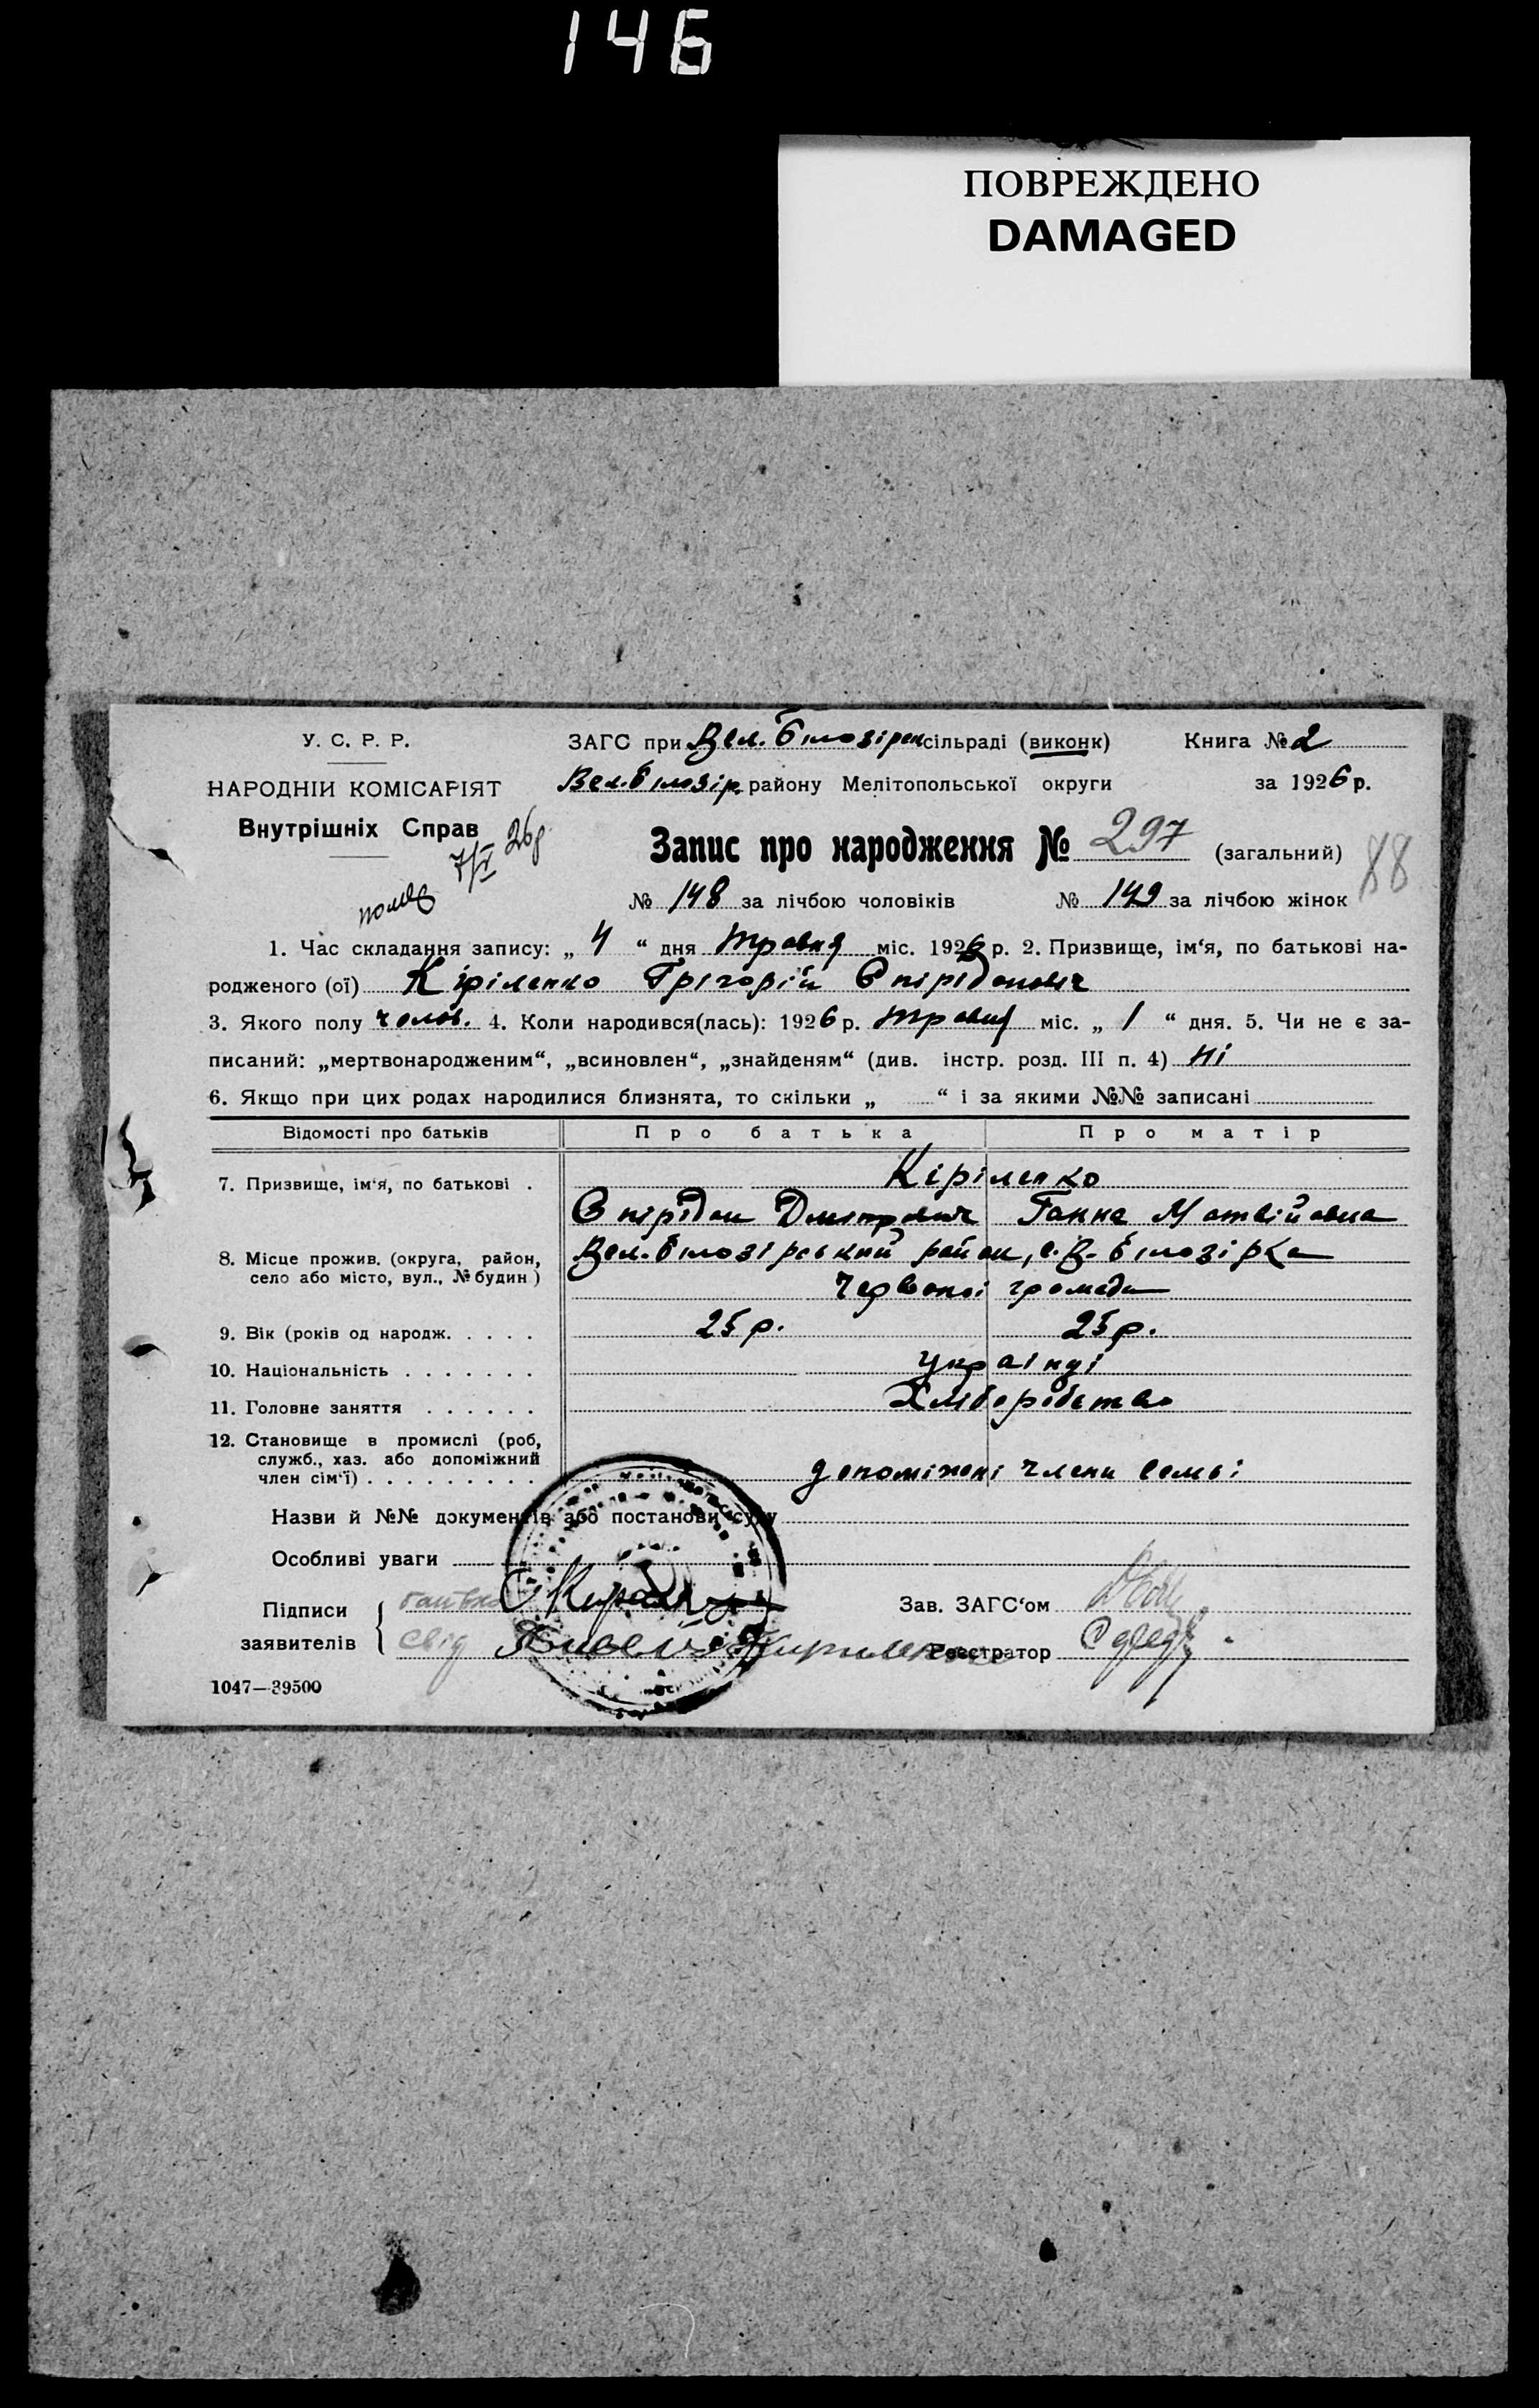 146
ПОВРЕЖДЕНО
DAMAGED
У. С. Р. Р.
НАРОДНІЙ КОМІСАРІЯТ
Внутрішніх Справ
7/V 26р.
ЗАГС при Вел. Білозірсн сільраді (виконк)
Книга № 2
Вел. Білозір. району Мелітопольської округи
за 1926 р.
Запис про народження № 297 (загальний)
88
№ 148 за лічбою чоловіків № 149 за лічбою жінок
1. Час складання запису: „ 4 “ дня травня міс. 1926 р. 2. Призвище, ім‘я, по батькові на-
родженого (ої) Кіріленко Грігорій Спірідонович
3. Якого полу чолов. 4. Коли народився(лась): 1926 р. травня міс. „ 1 “ дня. 5. Чи не є за-
писаний: „мертвонародженим“, „всиновлен“, „знайденям“ (див. інстр. розд. III п. 4) ні
6. Якщо при цих родах народилися близнята, то скільки „ “ і за якими №№ записані
Відомості про батьків
Про батька
Про матір
7. Призвище, ім‘я, по батькові .
Кіріленко
Спірідон Дмітрович Ганна Матвійовна
8. Місце прожив. (округа, район,
село або місто, вул., № будин)
Вел. Білозірський район, с. В-Білозірка
Червоної громади
9. Вік (років од народж. . . . .
25 р. 25 р.
10. Національність . . . . . . .
українці
11. Головне заняття . . . . . .
Хліборобство
12. Становище в промислі (роб,
служб., хаз. або допоміжний
член сім‘ї) . . . . . . . . .
допоміжні члени семьі
Назви й №№ документів або постанови суду
Особливі уваги
Підписи
заявителів
батько
свід Кириленко
Зав. ЗАГС‘ом
Реєстратор
1047—39500